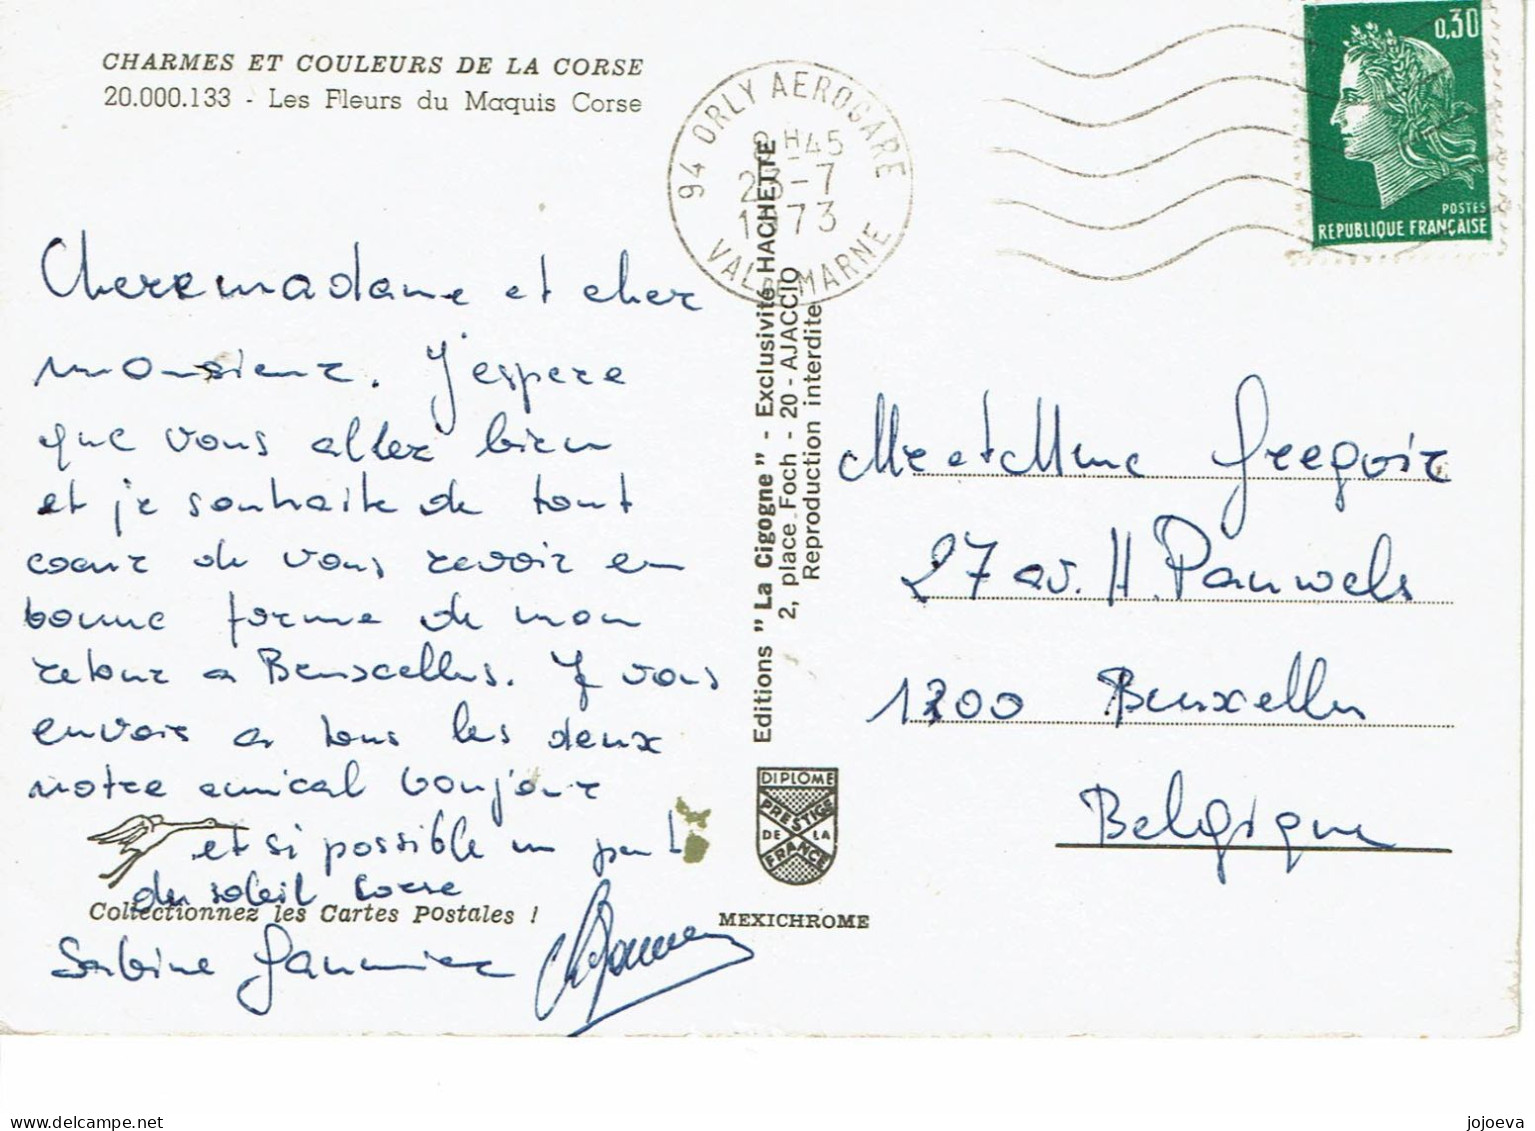 CHARMES ET COULEURS DE LA CORSE
20.000.133 - Les Fleurs du Maquis Corse
Chere madame et cher
monsieur. J'espere
que vous allez bien
et je souhaite de tout
coeur de vous revoir en
bonne forme de mon
retour a Bruxelles. Je vous
envois a tous les deux
notre amical bonjour
et si possible un peu
du soleil corse
Collectionnez les Cartes Postales !
Sabine
94 ORLY AEROGARE
H-45
-7
1973
VAL DE MARNE
Editions "La Cigogne" - Exclusivité HACHETTE
2, place Foch - 20 - AJACCIO
Reproduction interdite
DIPLOME
PRESTIGE
DE LA
FRANCE
MEXICHROME
0,30
POSTES
REPUBLIQUE FRANÇAISE
Mr et Mme Gregoir
27 av. H. Pauwels
1200 Bruxelles
Belgique
delcampe.net
jojoeva